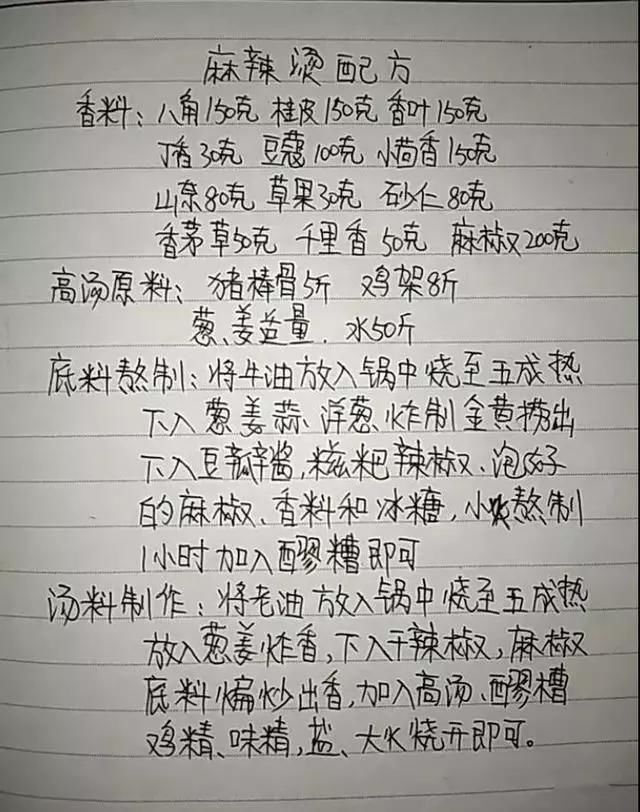 麻辣烫配方
香料：八角150克 桂皮150克 香叶150克
丁香30克 豆蔻100克 小茴香150克
山奈80克 草果30克 砂仁80克
香茅草50克 千里香50克 麻椒200克
高汤原料：猪棒骨5斤 鸡架8斤
葱、姜适量．水50斤
底料熬制：将牛油放入锅中烧至五成热
下入葱姜蒜、洋葱炸制金黄捞出
下入豆瓣酱，糍粑辣椒、泡好
的麻椒、香料和冰糖，小火熬制
1小时加入醪糟即可
汤料制作：将老油放入锅中烧至五成热
放入葱姜炸香，下入干辣椒，麻椒
底料煸炒出香，加入高汤、醪糟
鸡精、味精，盐、大火烧开即可。